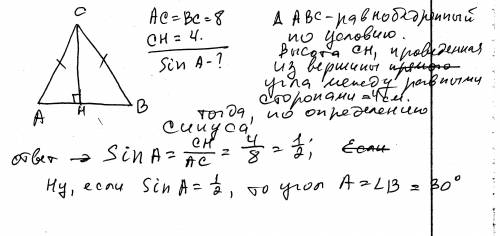 C
A
H
B
AC = BC = 8
CH = 4.
Sin A - ?
Δ ABC - равнобедренный
по условию.
Высота CH, проведенная
из вершины
угла между равными
сторонами = 4см.
тогда, по определению
синуса
ответ → Sin A = CH/AC = 4/8 = 1/2; Если
Ну, если Sin A = 1/2, то угол A = ∠B = 30°